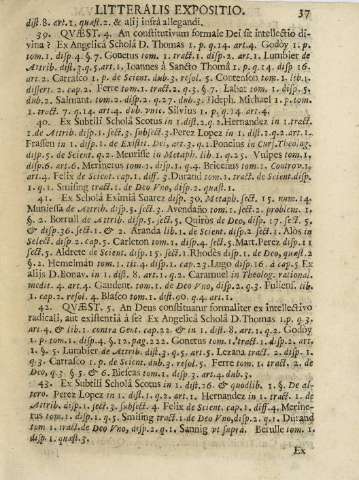 LITTERALIS EXPOSITIO. 37
disp. 8. art. 1. quæst. 2. & alij infrà allegandi.
39. QVÆST. 4. An constitutivum formale Dei sit intellectio di-
vina? Ex Angelicâ Scholâ D. Thomas 1. p. q. 14. art. 4. Godoy 1. p.
tom. 1. disp. 4. § 7. Gonetus tom. 1. tract. 1. disp. 2. art. 1. Lumbier de
Attrib. dist. 3. q. 5. art. 1. Ioannes à Sancto Thomâ 1. p. q. 14. disp. 16.
art. 2. Carrasco 1. p. de Scient. dub. 3. resol. 5. Contenson tom. 1. lib. 1.
dissert. 2. cap. 2. Ferre tom. 1. tract. 2. q. 3. §. 7. Labat tom. 1. disp. 5.
dub. 2. Salmant. tom. 2. disp. 2. q. 27. dub. 3. Fdeph. Michael 1. p. tom.
1. tract. 7. q. 14. art. 4. dub. vnic. Silvius 1. p. q. 14. art. 4.
40. Ex Subtili Scholâ Scotus in 1. dist. 2. q. 2. Hernandez in 1. tract.
1. de Attrib. disp. 1. sect. 3. subsect. 3. Perez Lopez in 1. dist. 1. q. 2. art. 1.
Frassen in 1. disp. 1. de Existi. Dei, art. 3. q. 1. Poncius in Curs. Theolog.
disp. 5. de Scient. q. 2. Meurisse in Metaph. lib 1. q. 25. Vulpes tom. 1.
disp. 6. art. 6. Merinerus tom. 1. disp. 1. q. 4. Briceius tom. 1. Controv. 1.
art. 4. Felix de Scient. cap. 1. diff. 3. Durand tom. 1. tract. de Scient. disp.
1. q. 1. Smising tract. 1. de Deo Vno, disp. 2. quæst. 1.
41. Ex Scholâ Eximiâ Suarez disp. 30. Metaph. sect. 15. num. 14.
Muniessa de Attrib. disp. 5. sect. 3. Avendaño tom. 1. sect. 2. problem. 1.
§. 2. Borrull de Attrib. disp. 5. sect. 5. Quiròs de Deo, disp. 17. sect. 5.
& disp. 36. sect. 1. & 2. Aranda lib. 1. de Scient. disp. 2. sect. 1. Alòs in
Select. disp. 2. cap. 5. Carleton tom. 1. disp. 4. sect. 5. Mart. Perez disp. 1.
sect. 5. Aldrete de Scient. disp. 15. sect. 1. Rhodès disp. 1. de Deo, quæst. 2.
§. 2. Hemelman tom. 1. tit. 4. disp. 1. cap. 23. Lugo disp. 16. à cap. 5. Ex
alijs D. Bonav. in 1. dist. 8. art. 1. q. 2. Caramuel in Theolog. rational.
medit. 4. art. 4. Gaudent. tom. 1. de Deo Vno, disp. 2. q. 3. Fulleni. lib.
1. cap. 2. resol. 4. Blasco tom. 1. dist. 90. q. 4. art. 1.
42. QVÆST. 5. An Deus constituatur formaliter ex intellectivo
radicali, aut existentiâ à se? Ex Angelicâ Scholâ D. Thomas 1. p. q. 3.
art. 4. & lib. 1. contra Gent. cap. 22. & in 1. dist. 8. art. 1. q. 2. Godoy
1. p. tom. 1. disp. 4. §. 12. pag. 222. Gonetus tom. 1. tract. 1. disp. 2. art.
1. §. 5. Lumbier de Attrib. dist. 3. q. 5. art. 5. Lezana tract. 2. disp. 1.
q. 3. Carrasco 1. p. de Scient. dub. 3. resol. 5. Ferre tom. 1. tract. 2. de
Deo, q. 3. §. 5. & 6. Biescas tom. 1. disp. 3. art. 4. dub. 3.
43. Ex Subtili Scholâ Scotus in 1. dist. 26. & quodlib. 1. §. De al-
tero. Perez Lopez in 1. dist. 1. q. 2. art. 1. Hernandez in 1. tract. 1. de
Attrib. disp. 1. sect. 3. subsect. 4. Felix de Scient. cap. 1. diff. 4. Merine-
rus tom. 1. disp. 1. q. 5. Smising tract. 1. de Deo Vno, disp. 2. q. 1. Durand
tom 1. tract. de Deo Vno, disp. 2. q. 1. Sannig vt suprà. Berulle tom. 1.
disp. 1. quæst. 3.
Ex